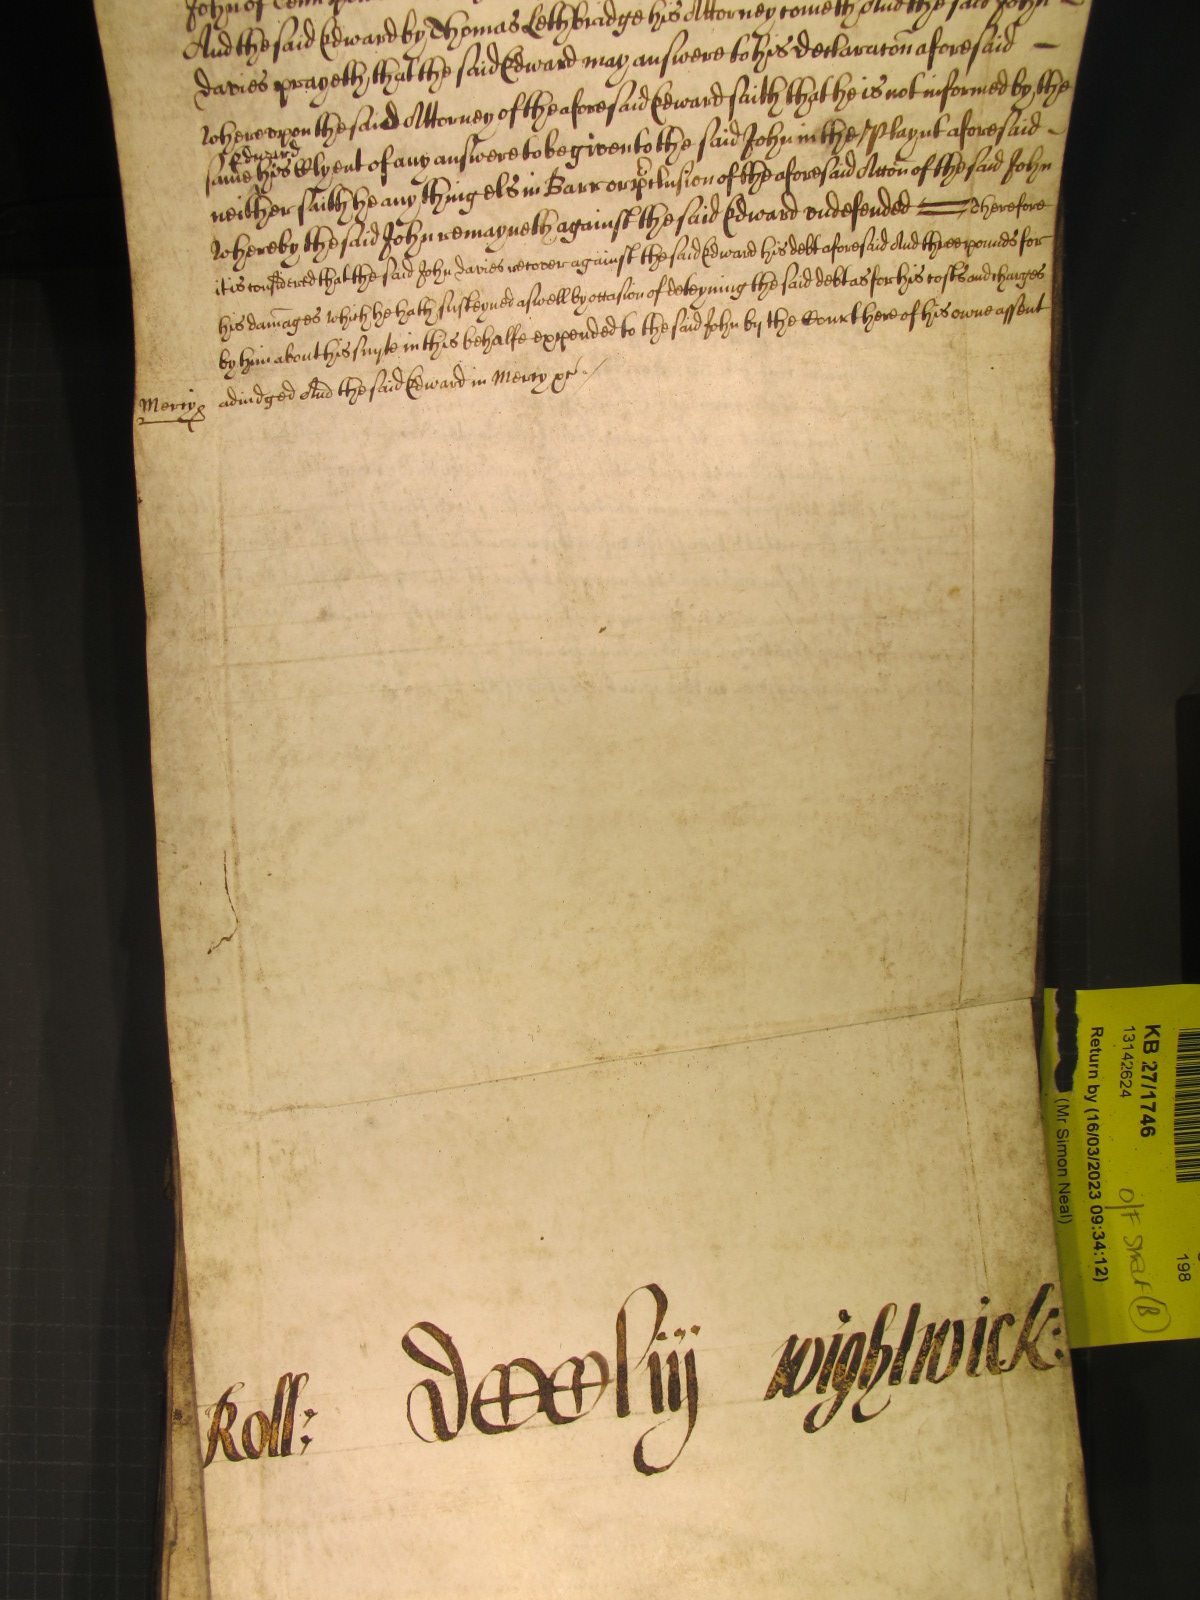 John of
And the said Edward by Thomas Lethbridge his Attorney cometh And the said John
Davies prayeth that the said Edward may answere to his declaracon aforesaid
whereupon the said Attorney of the aforesaid Edward saith that he is not informed by the
Edward
same his Clyent of any answere to be given to the said John in the Playnt aforesaid
neither saith he any thing els in Barr or preclusion of the aforesaid Accon of the said John
whereby the said John remayneth against the said Edward undefended Therefore
it is considered that the said John Davies recover against the said Edward his debt aforesaid And three pounds for
his damages which he hath susteyned aswell by occasion of deteyning the said debt as for his costs and charges
by him about his suyte in this behalfe expended to the said John by the Court here of his owne assent
Mercy adiudged And the said Edward in Mercy &c
Roll: Dccliiij Wightwick:
KB 27/1746
13142624
Return by (16/03/2023 09:34:12)
(Mr Simon Neal)
O/F
B
198